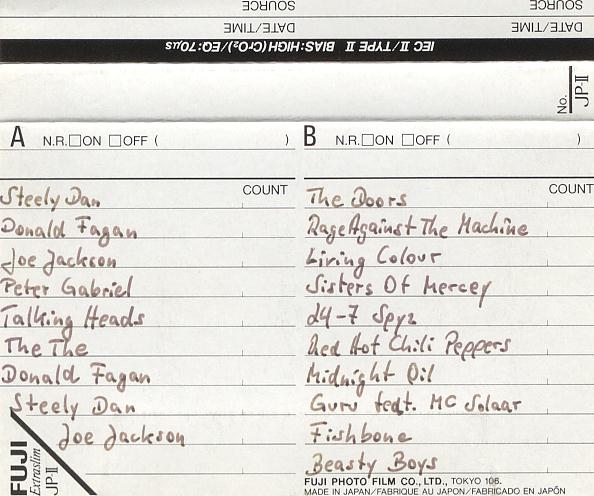 SOURCE SOURCE
DATE/TIME DATE/TIME
IEC II/TYPE II BIAS:HIGH(CrO₂)/EQ:70μs
No. JP-II
A N.R.□ON □OFF ( )
COUNT
Steely Dan
Donald Fagan
Joe Jackson
Peter Gabriel
Talking Heads
The The
Donald Fagan
Steely Dan
Joe Jackson
FUJI
Extraslim
JP-II
B N.R.□ON □OFF ( )
COUNT
The Doors
Rage Against The Machine
Living Colour
Sisters Of Mercey
24-7 Spyz
Red Hot Chili Peppers
Midnight Oil
Guru feat. MC Solaar
Fishbone
Beasty Boys
FUJI PHOTO FILM CO., LTD., TOKYO 106.
MADE IN JAPAN/FABRIQUE AU JAPON/FABRICADO EN JAPÓN